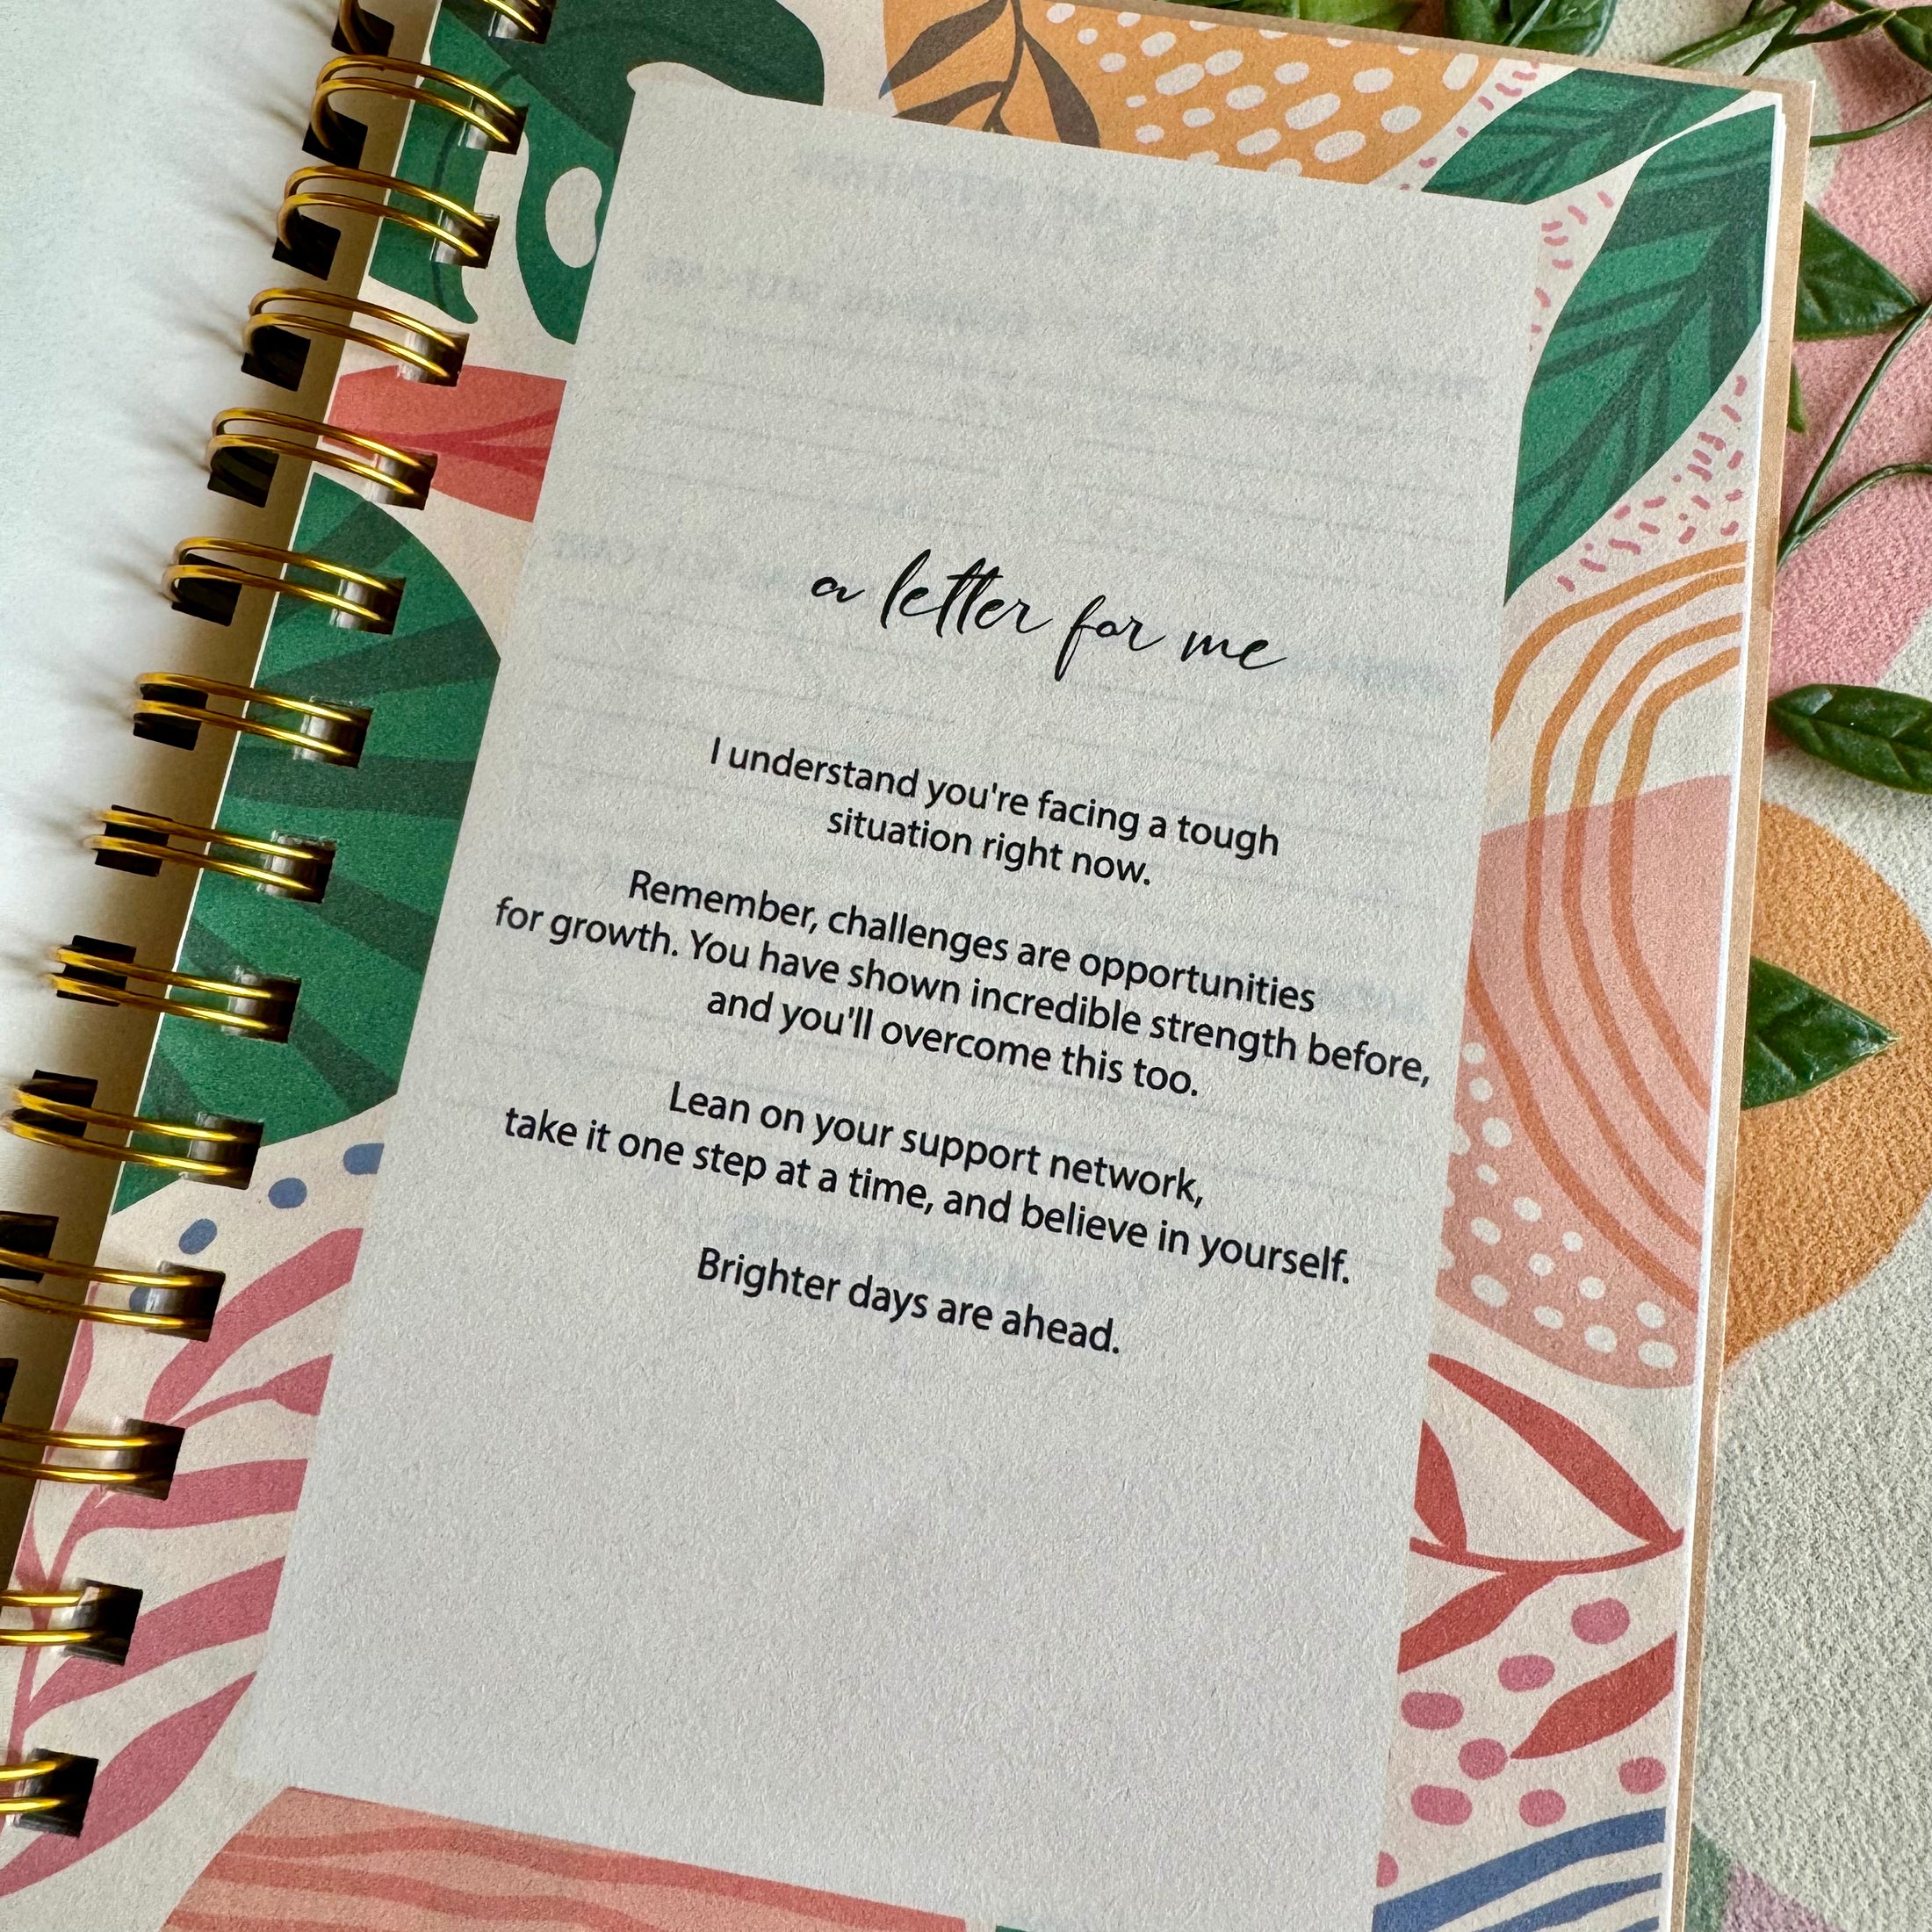 a letter for me
I understand you're facing a tough
situation right now.
Remember, challenges are opportunities
for growth. You have shown incredible strength before,
and you'll overcome this too.
Lean on your support network,
take it one step at a time, and believe in yourself.
Brighter days are ahead.